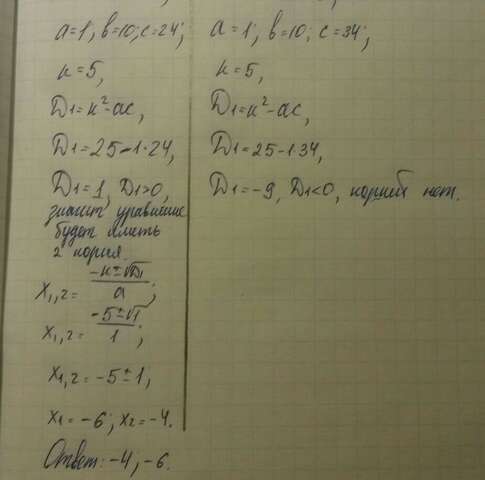 a=1; b=10; c=24;
k=5,
D1=k²-ac,
D1=25-1·24,
D1=1, D1>0,
значит уравнение
будет иметь
2 корня.
x1,2= -k±√D1/a;
x1,2= -5±√1/1;
x1,2=-5±1,
x1=-6; x2=-4.
Ответ: -4, -6.
a=1; b=10; c=34;
k=5,
D1=k²-ac,
D1=25-1·34,
D1=-9, D1<0, корней нет.